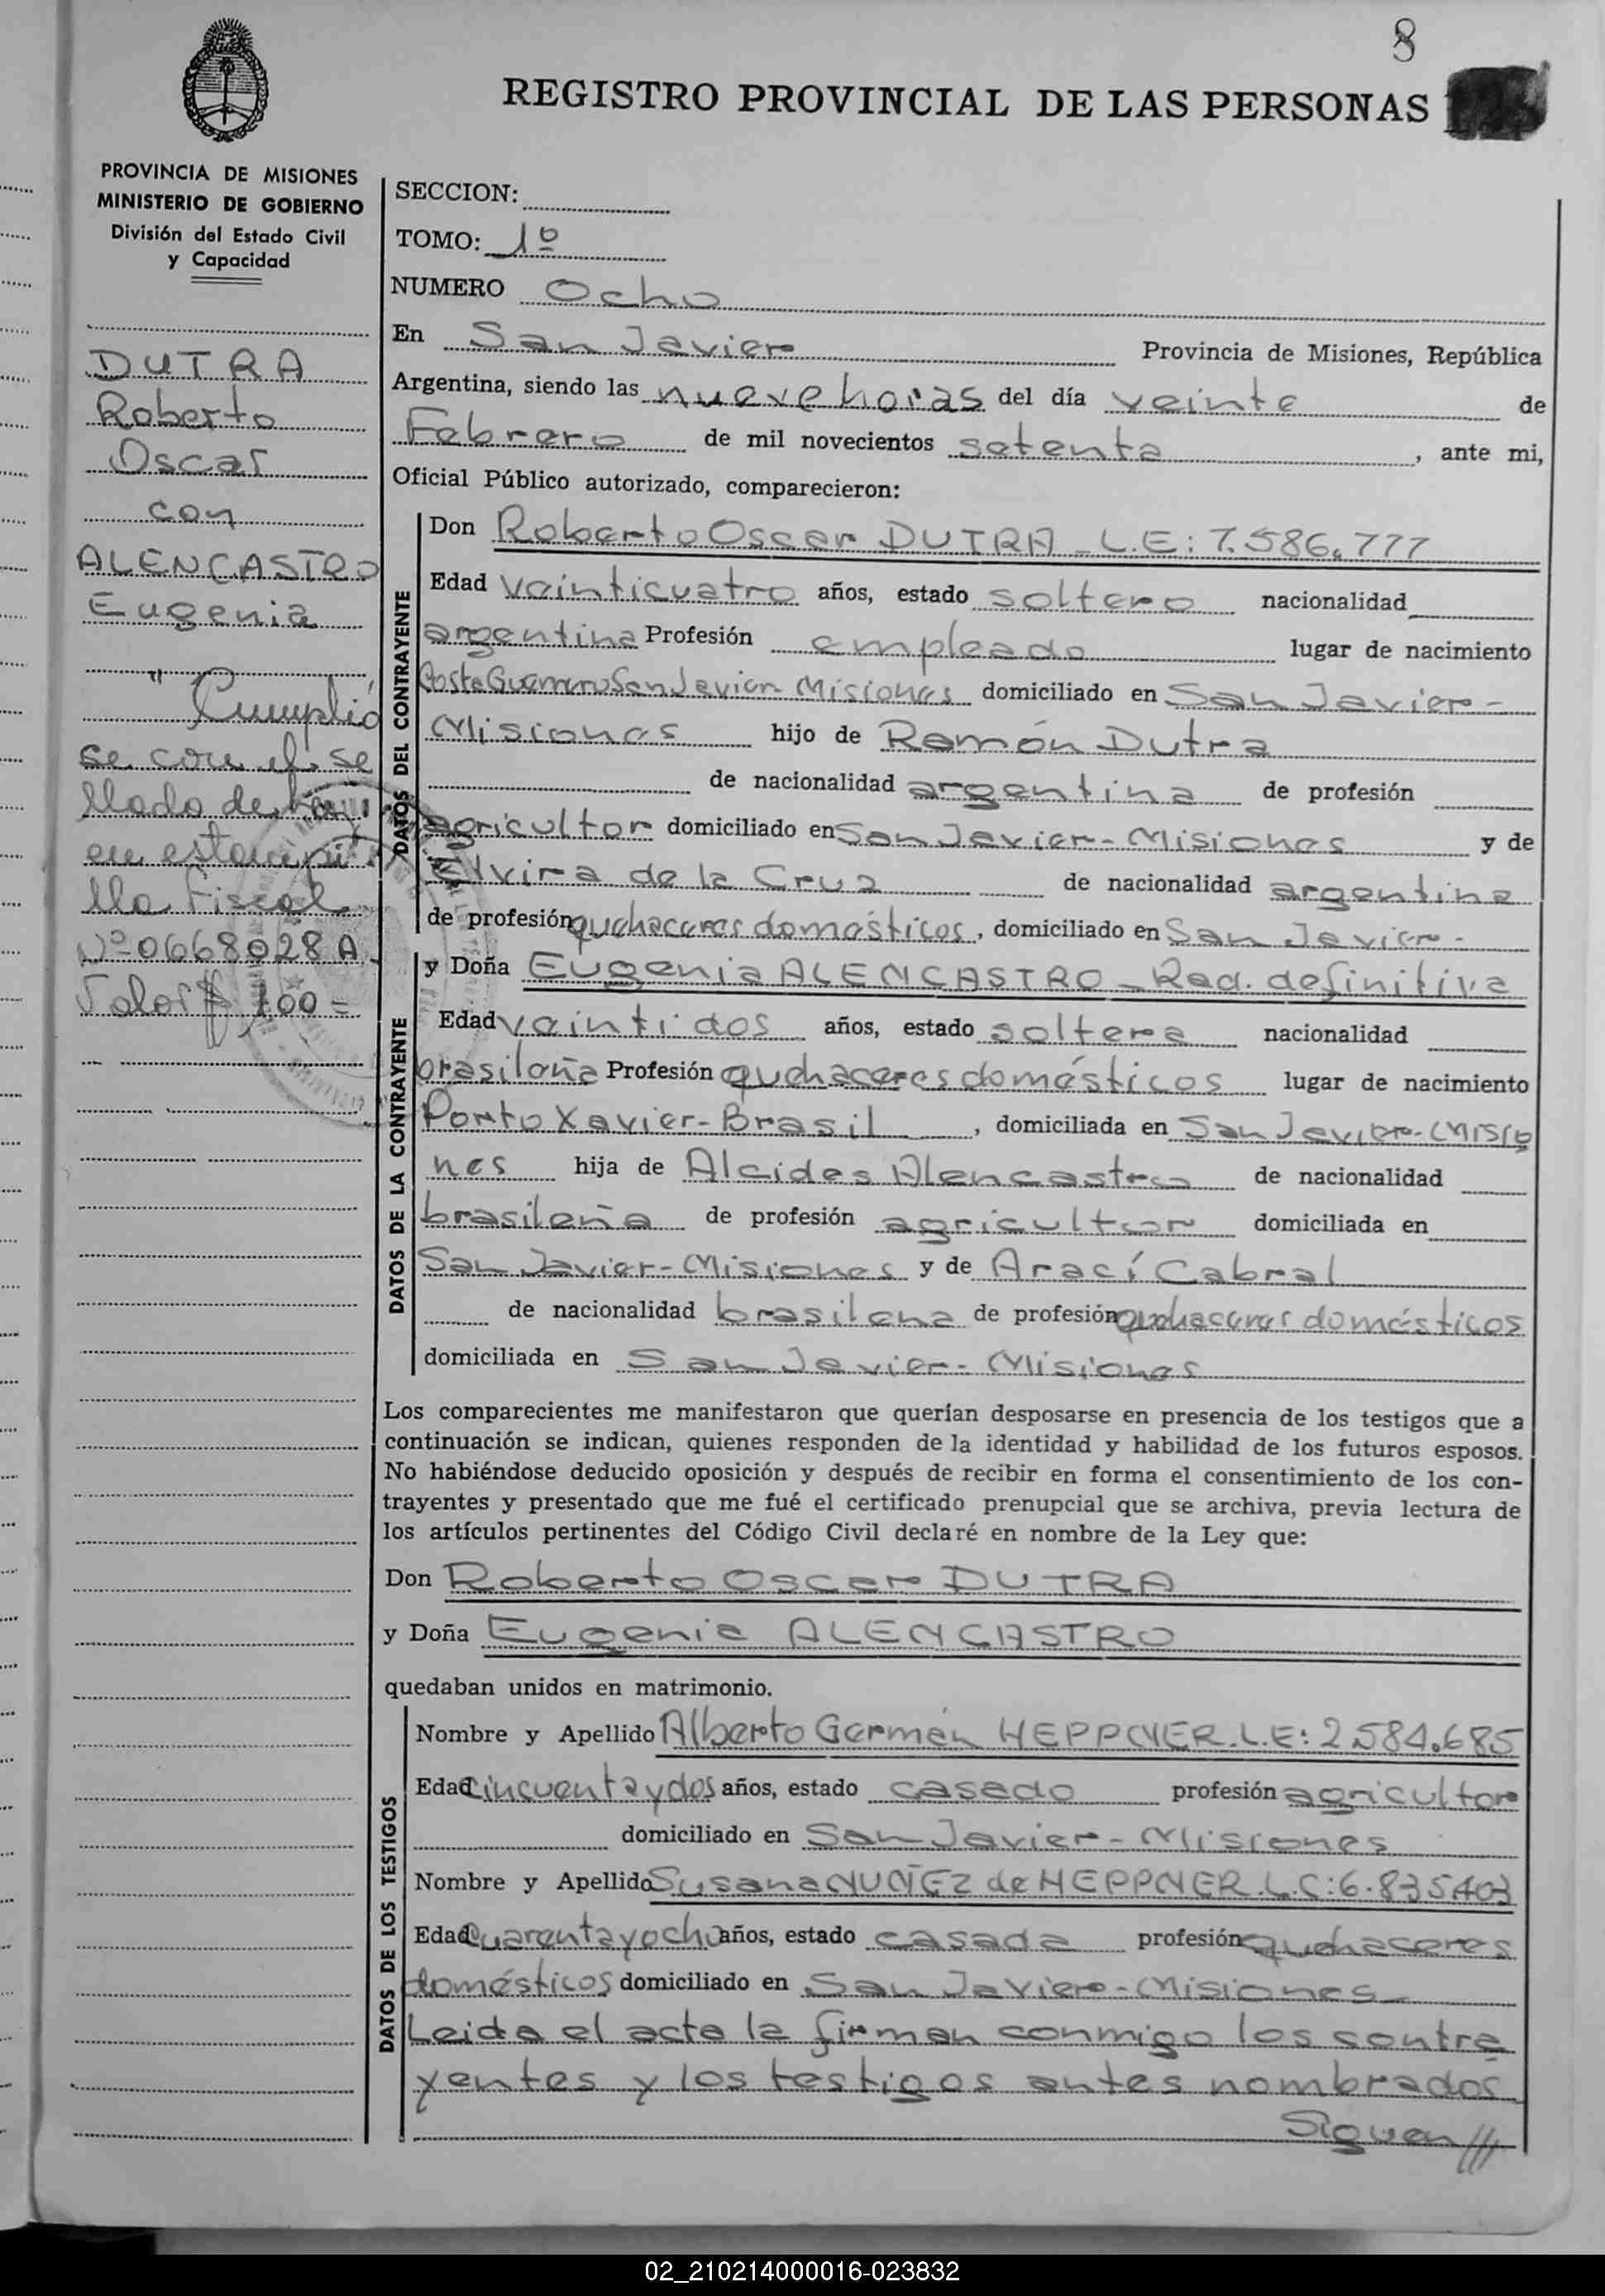 8
REGISTRO PROVINCIAL DE LAS PERSONAS
PROVINCIA DE MISIONES
MINISTERIO DE GOBIERNO
División del Estado Civil
y Capacidad
DUTRA
Roberto
Oscar
con
ALENCASTRO
Eugenia
"Cumplió
se con el se
llado de
en estampi
lla Fiscal
Nº 0668028 A
Valor $ 100=
SECCION:
TOMO: 1º
NUMERO Ocho
En San Javier Provincia de Misiones, República
Argentina, siendo las nueve horas del día veinte de
Febrero de mil novecientos setenta, ante mi,
Oficial Público autorizado, comparecieron:
DATOS DEL CONTRAYENTE
Don Roberto Oscar DUTRA - L.E: 7.586.777
Edad veinticuatro años, estado soltero nacionalidad
argentina Profesión empleado lugar de nacimiento
Costa Guerrero San Javier Misiones domiciliado en San Javier-
Misiones hijo de Ramón Dutra
de nacionalidad argentina de profesión
agricultor domiciliado en San Javier-Misiones y de
Elvira de la Cruz de nacionalidad argentina
de profesión quehaceres domésticos, domiciliado en San Javier-
DATOS DE LA CONTRAYENTE
y Doña Eugenia ALENCASTRO - Rad. definitiva
Edad veintidos años, estado soltera nacionalidad
brasileña Profesión quehaceres domésticos lugar de nacimiento
Porto Xavier-Brasil, domiciliada en San Javier-Misio
nes hija de Alcides Alencastro de nacionalidad
brasileña de profesión agricultor domiciliada en
San Javier-Misiones y de Arací Cabral
de nacionalidad brasilena de profesión quehaceres domésticos
domiciliada en San Javier-Misiones
Los comparecientes me manifestaron que querían desposarse en presencia de los testigos que a
continuación se indican, quienes responden de la identidad y habilidad de los futuros esposos.
No habiéndose deducido oposición y después de recibir en forma el consentimiento de los con-
trayentes y presentado que me fué el certificado prenupcial que se archiva, previa lectura de
los artículos pertinentes del Código Civil declaré en nombre de la Ley que:
Don Roberto Oscar DUTRA
y Doña Eugenia ALENCASTRO
quedaban unidos en matrimonio.
DATOS DE LOS TESTIGOS
Nombre y Apellido Alberto Germán HEPPNER. L.E: 2.584.685
Edad cincuenta y dos años, estado casado profesión agricultor
domiciliado en San Javier-Misiones
Nombre y Apellido Susana NUÑEZ de HEPPNER. L.C: 6.835.403
Edad cuarenta y ocho años, estado casada profesión quehaceres
domésticos domiciliado en San Javier-Misiones
Leida el acta la firman conmigo los contra
yentes y los testigos antes nombrados
Siguen///
02_210214000016-023832